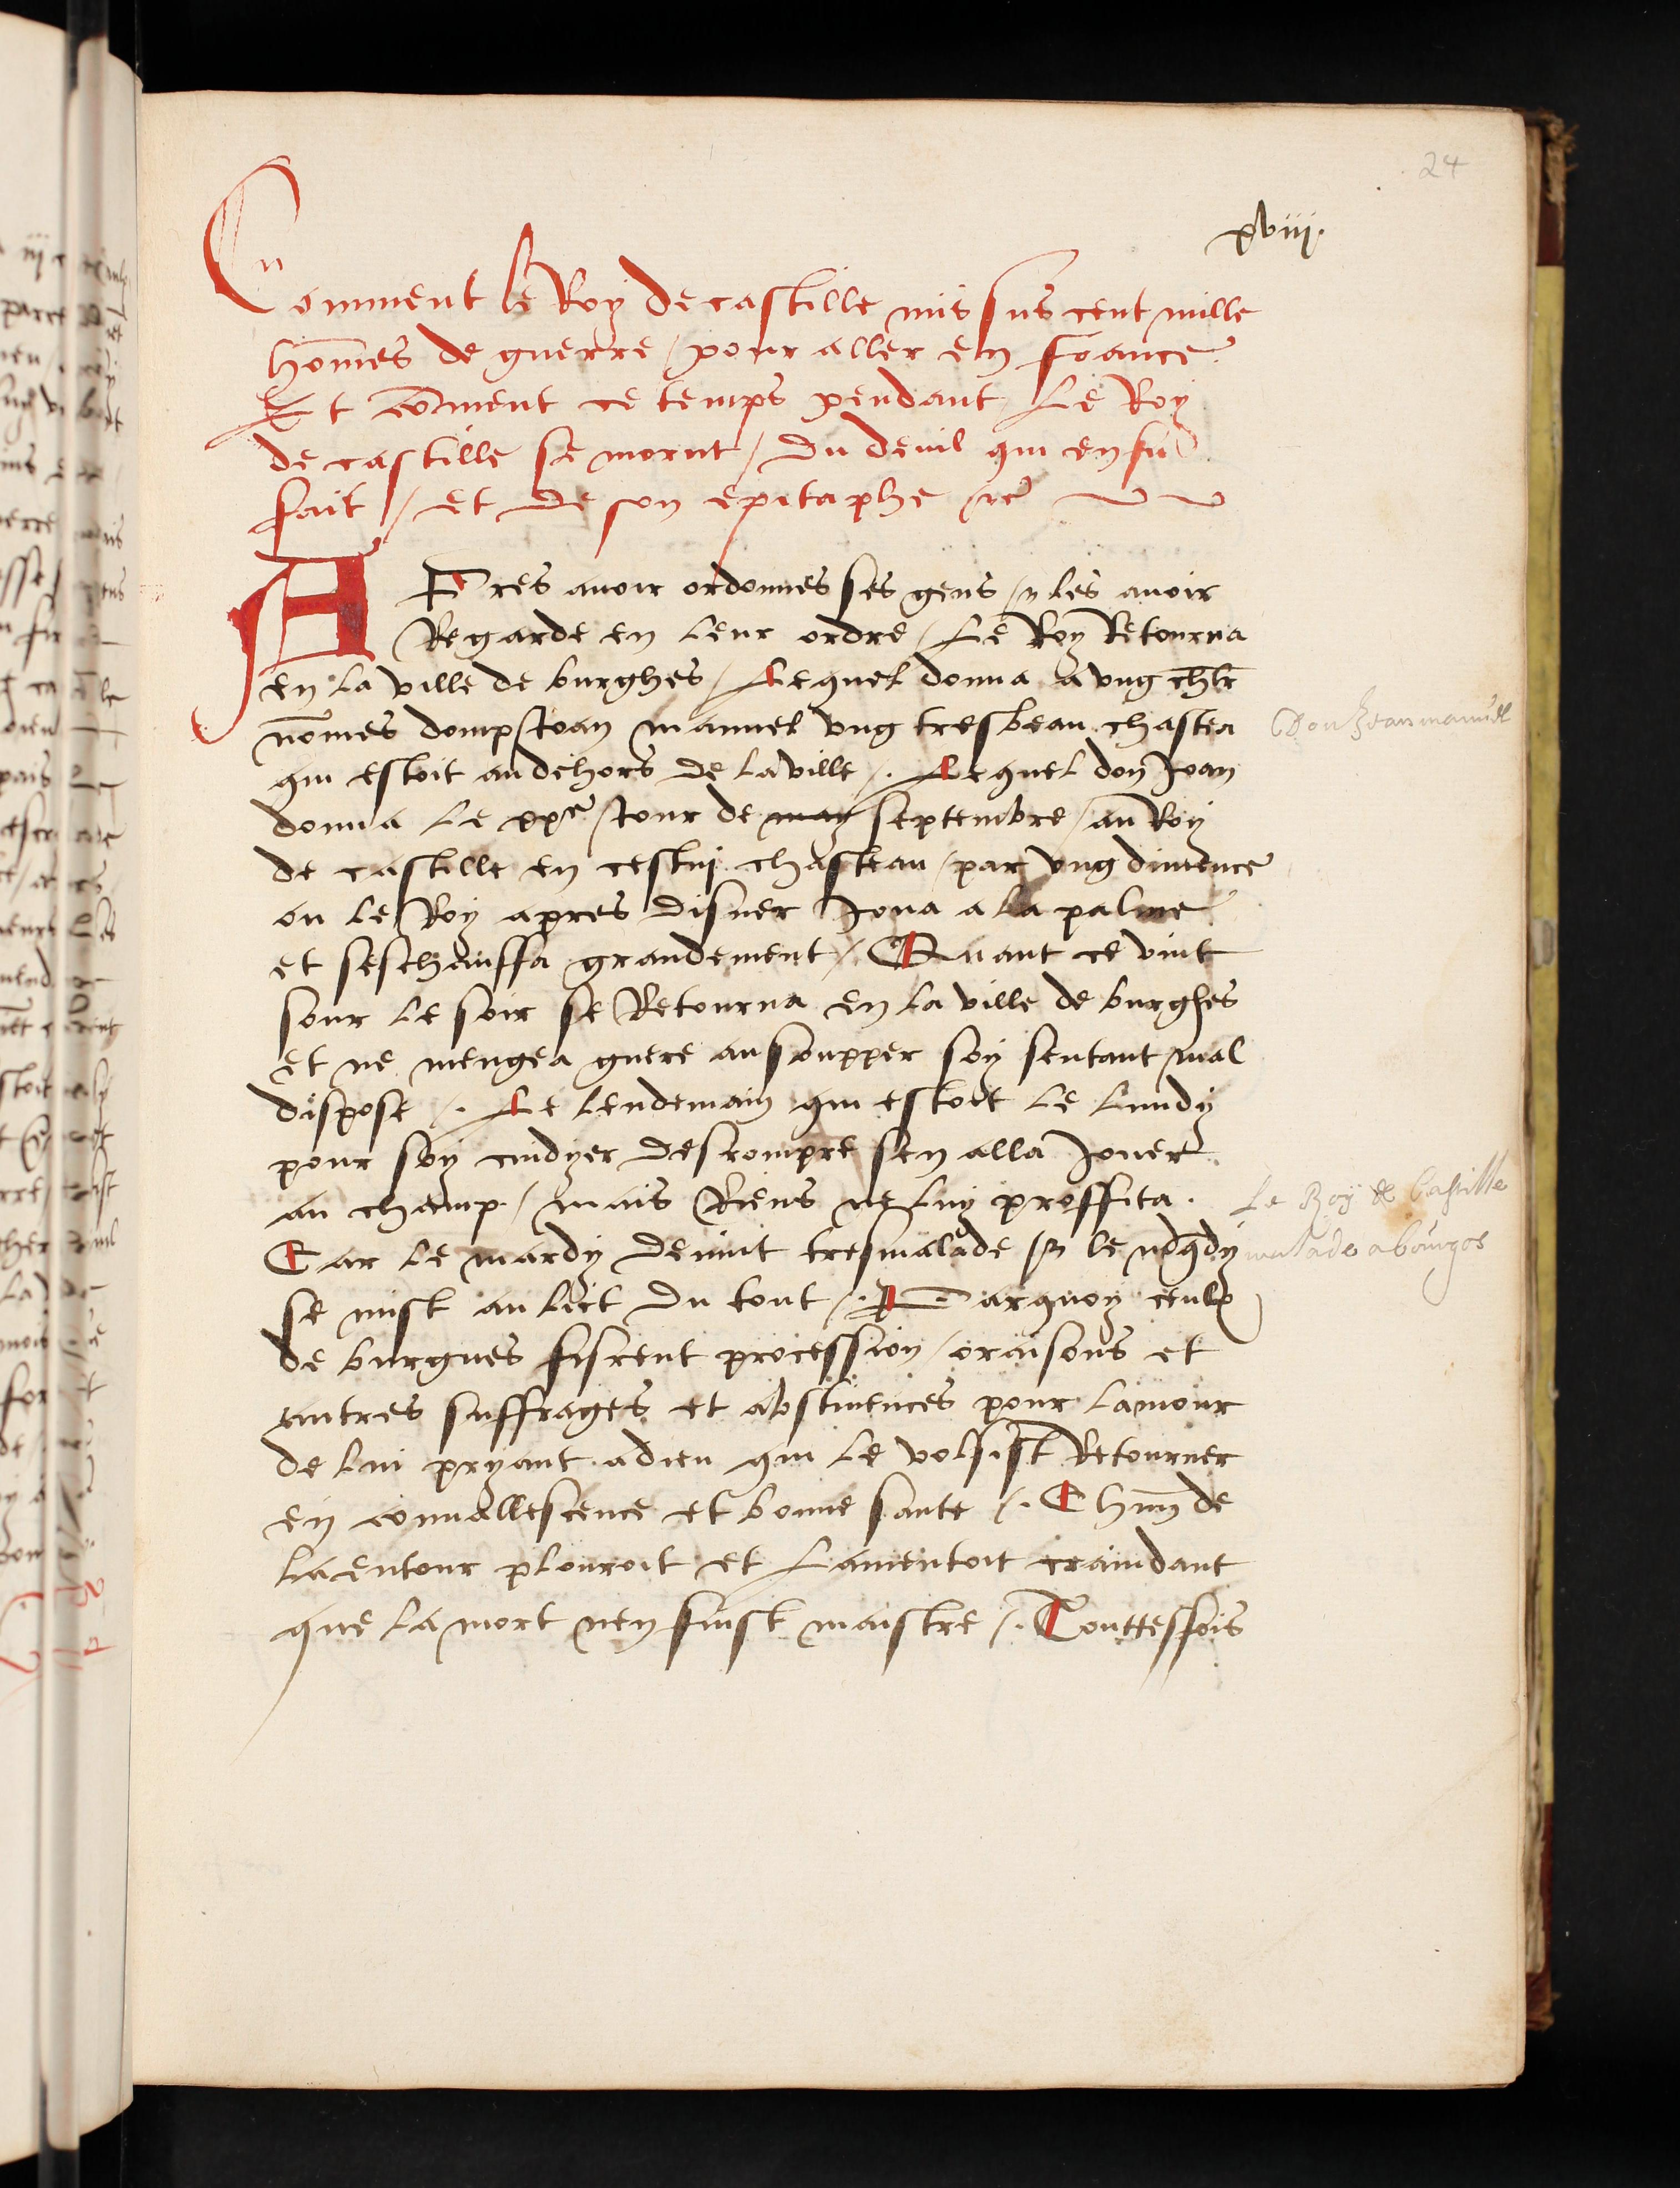 24
xviij.
Comment le Roy de castille mis sus cent mille
hom̄es de guerre / pour aller en france.
Et cōment ce temps pendant / Le Roy
de castille se morut / du deuil qui en fu
fait / et de son epitaphe etc̄
APres auoir ordonnes ses gens / et les auoir
Regarde en leur ordre / Le Roy Retourna
en la ville de burghes / Lequel donna a vng chlr̄
nōmes domp Joan manuel vng tresbeau chastea
qui estoit au dehors de la ville /. Lequel don Joan
donna le xxe Jour de may septembre / au Roy
de castille en cestuj chasteau / par vng dimence
ou le Roy apres disner Joua a la palme
et seschauffa grandement /. Quant ce vint
sour le soir se Retourna en la ville de burghes
et ne mengea guere au soupper soy sentant mal
dispose /. Le lendemain qui estoit le lundy
pour soy cuidyer desrompre sen alla Jouer
au champ / mais Riens ne luy proffita.
Car le mardy deuint tresmalade / et le
se mist au lict du tout /. Parquoy ceulx
de burgues fisrent procession / oraisons et
autres suffrages et abstinences pour lamour
de lui pryant a dieu qui le volsist Retourner
en conuallescence et bonne sante /. Chūn de
la entour plouroit et Lamentoit craindant
que la mort nen fuist maistre /. Touttesfois
Don Jean manuel
Le Roy de Castille
malade a bourgos